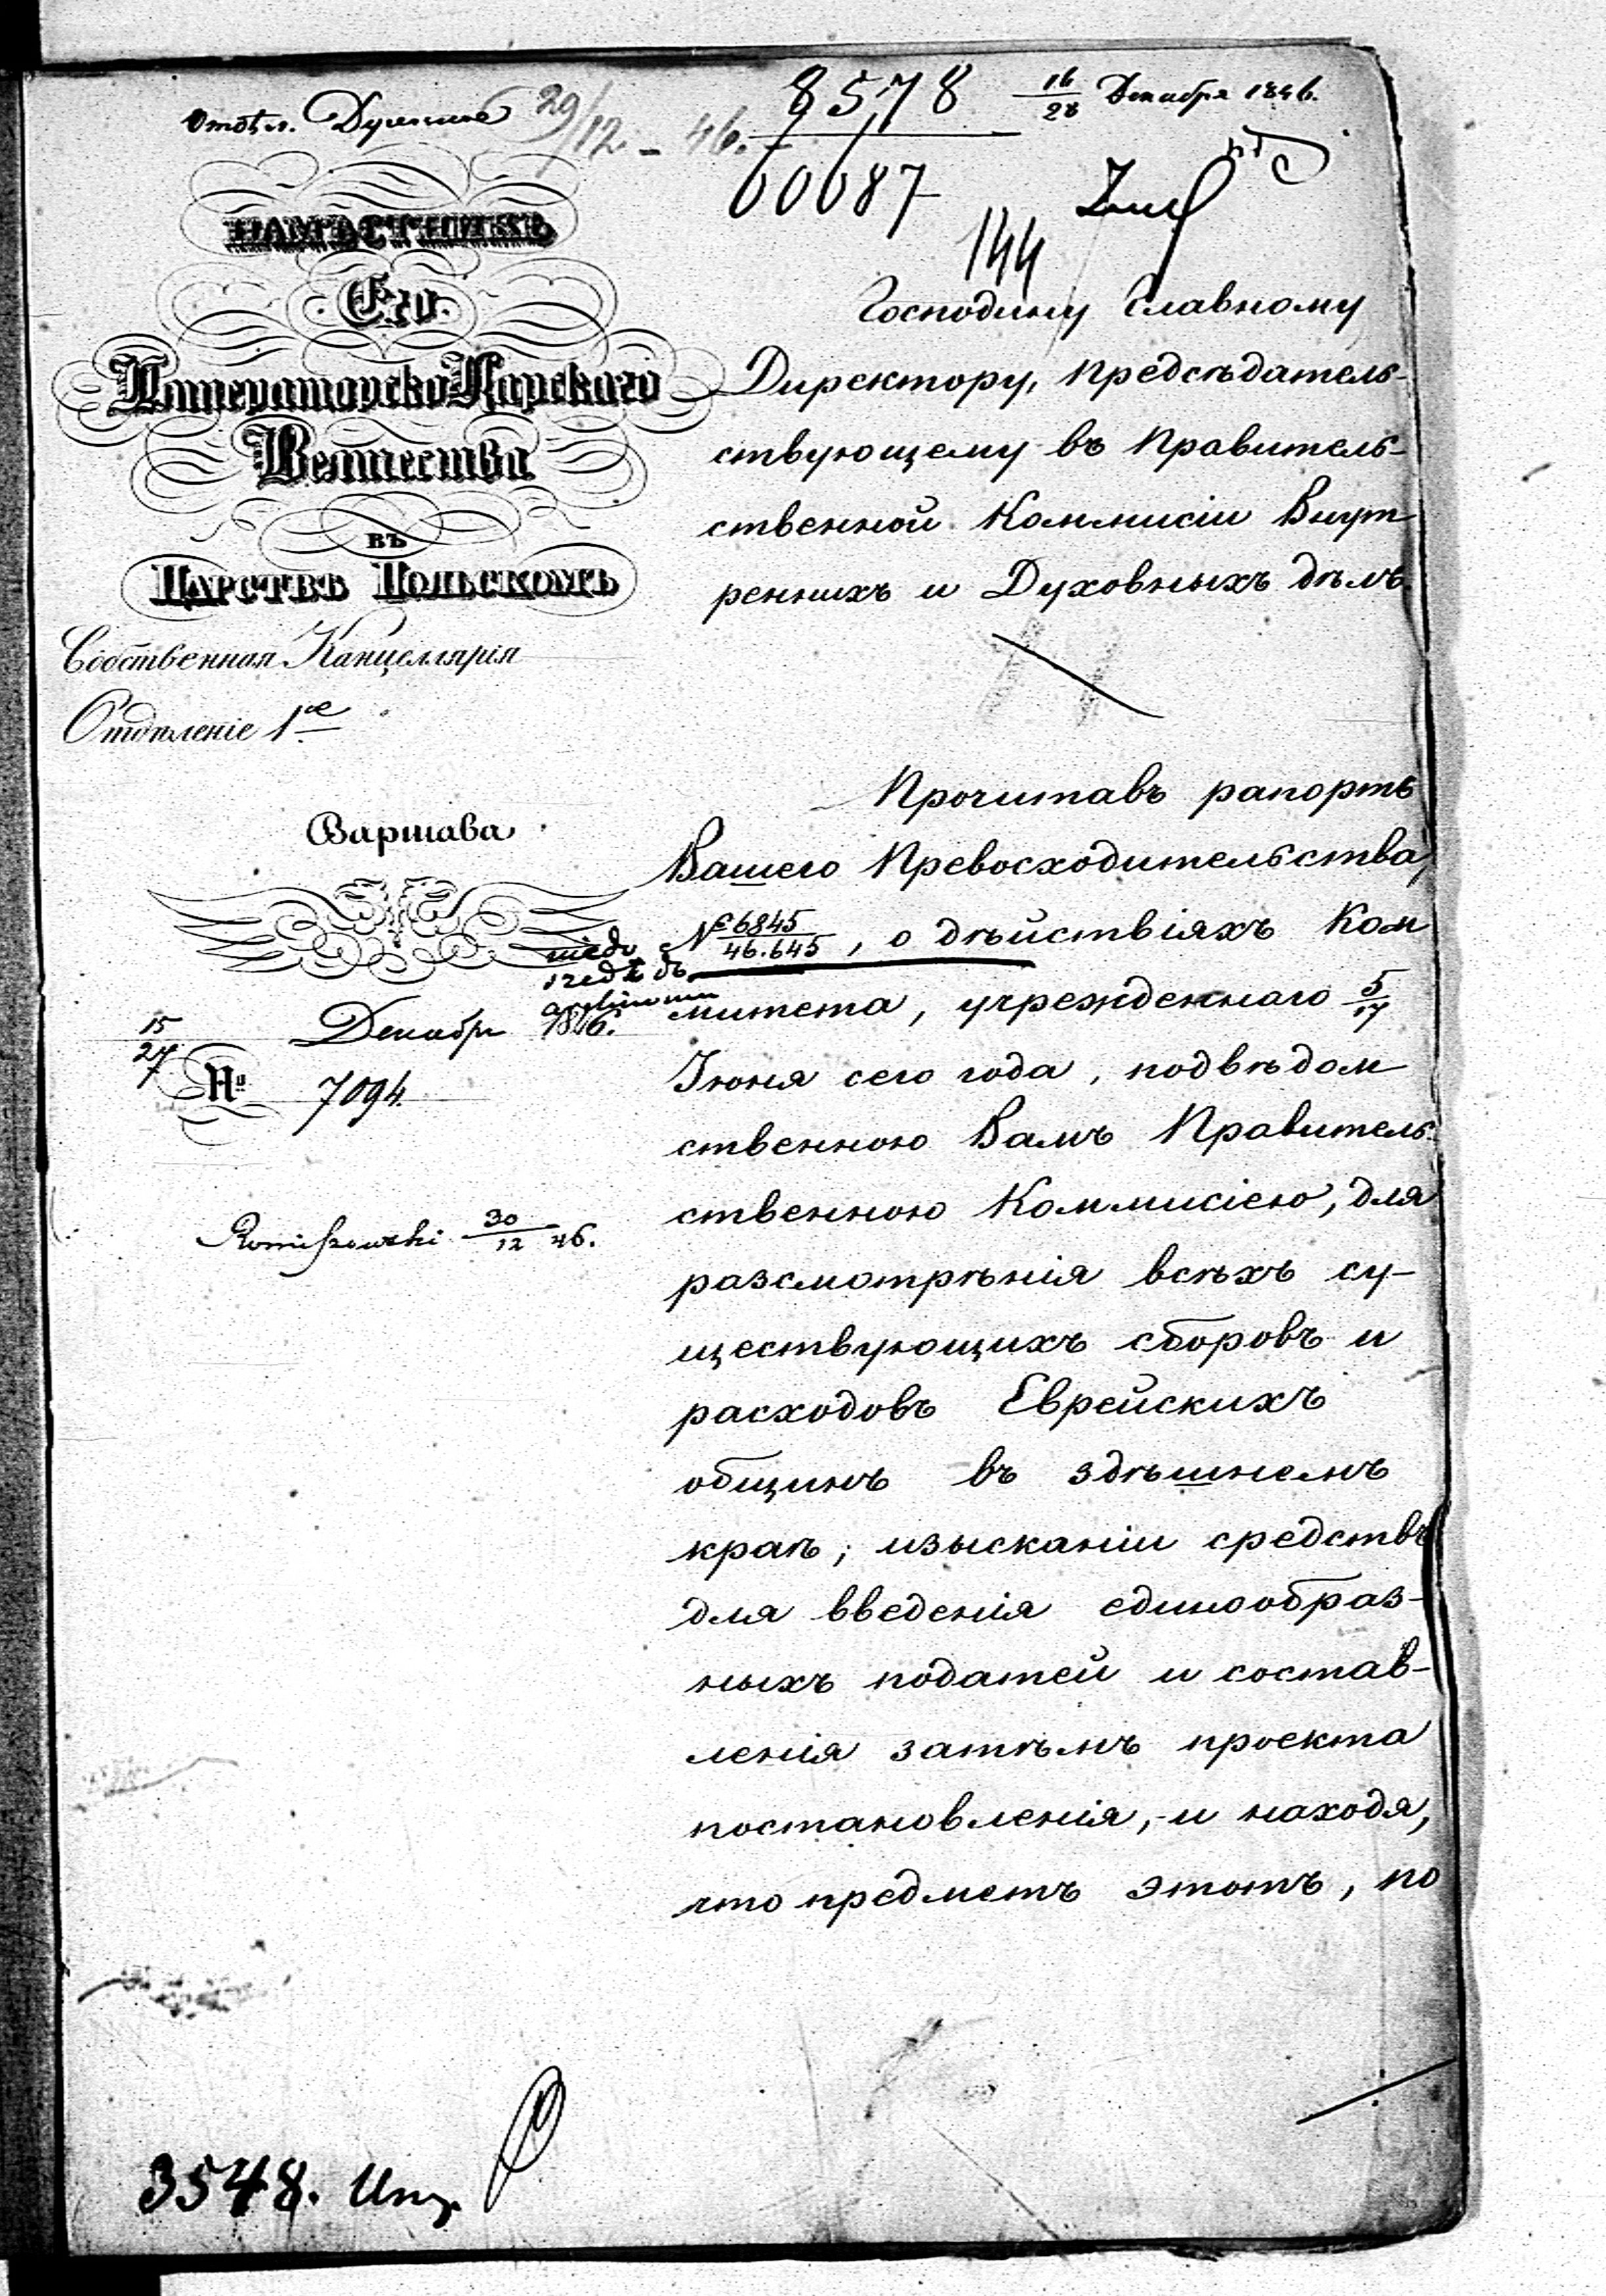 8578
60687
16/28 Декабря 1846.
29/12 - 46.
144
НАМѢСТНИКЪ
Его
Императорско Царскаго
Величества
въ
Царствѣ Польскомъ
Собственная Канцеллярія
Отдѣленіе 1е
Варшава
15/27 Декабря 1846.
№ 7094.
30/12 46.
Господину Главному
Директору, Предсѣдатель-
ствующему въ Правитель-
ственной Коммисіи Внут
реннихъ и Духовныхъ дѣлъ.
Прочитавъ рапортъ
Вашего Превосходительства,
№ 6845/46.645, о дѣйствіяхъ Ком
митета, учрежденнаго 5/17
Іюня сего года, подвѣдом
ственною Вамъ Правитель-
ственною Коммисіею, для
разсмотрѣнія всѣхъ су-
ществующихъ сборовъ и
расходовъ Еврейскихъ
общинъ въ здѣшнемъ
краѣ; изысканіи средствъ
для введенія единообраз-
ныхъ податей и состав-
ленія затѣмъ проекта
постановленія, и находя,
что предметъ этотъ, по
3548.